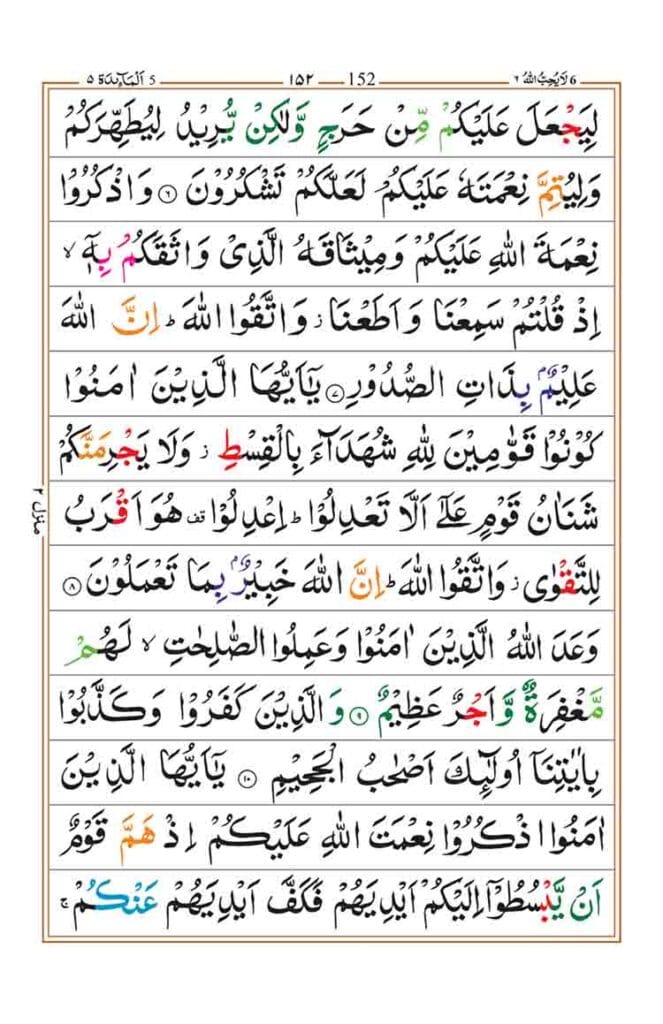 ٦ لَا يُحِبُّ اللهُ 6 152 — ١٥٢ اَلْمَآئِدَة ٥ 5
لِيَجْعَلَ عَلَيْكُمْ مِّنْ حَرَجٍ وَّلٰكِنْ يُّرِيْدُ لِيُطَهِّرَكُمْ
وَلِيُتِمَّ نِعْمَتَهٗ عَلَيْكُمْ لَعَلَّكُمْ تَشْكُرُوْنَ ۝٦ وَاذْكُرُوْا
نِعْمَةَ اللهِ عَلَيْكُمْ وَمِيْثَاقَهُ الَّذِيْ وَاثَقَكُمْ بِهٖٓ ۙ
اِذْ قُلْتُمْ سَمِعْنَا وَاَطَعْنَا ز وَاتَّقُوا اللهَ ط اِنَّ اللهَ
عَلِيْمٌۢ بِذَاتِ الصُّدُوْرِ ۝٧ يٰٓاَيُّهَا الَّذِيْنَ اٰمَنُوْا
كُوْنُوْا قَوّٰمِيْنَ لِلّٰهِ شُهَدَآءَ بِالْقِسْطِ ز وَلَا يَجْرِمَنَّكُمْ
شَنَاٰنُ قَوْمٍ عَلٰٓى اَلَّا تَعْدِلُوْا ط اِعْدِلُوْا قف هُوَ اَقْرَبُ
لِلتَّقْوٰى ز وَاتَّقُوا اللهَ ط اِنَّ اللهَ خَبِيْرٌۢ بِمَا تَعْمَلُوْنَ ۝٨
وَعَدَ اللهُ الَّذِيْنَ اٰمَنُوْا وَعَمِلُوا الصّٰلِحٰتِ ۙ لَهُمْ
مَّغْفِرَةٌ وَّاَجْرٌ عَظِيْمٌ ۝٩ وَالَّذِيْنَ كَفَرُوْا وَكَذَّبُوْا
بِاٰيٰتِنَآ اُولٰٓئِكَ اَصْحٰبُ الْجَحِيْمِ ۝١٠ يٰٓاَيُّهَا الَّذِيْنَ
اٰمَنُوا اذْكُرُوْا نِعْمَتَ اللهِ عَلَيْكُمْ اِذْ هَمَّ قَوْمٌ
اَنْ يَّبْسُطُوْٓا اِلَيْكُمْ اَيْدِيَهُمْ فَكَفَّ اَيْدِيَهُمْ عَنْكُمْ ۚ
منزل ٢